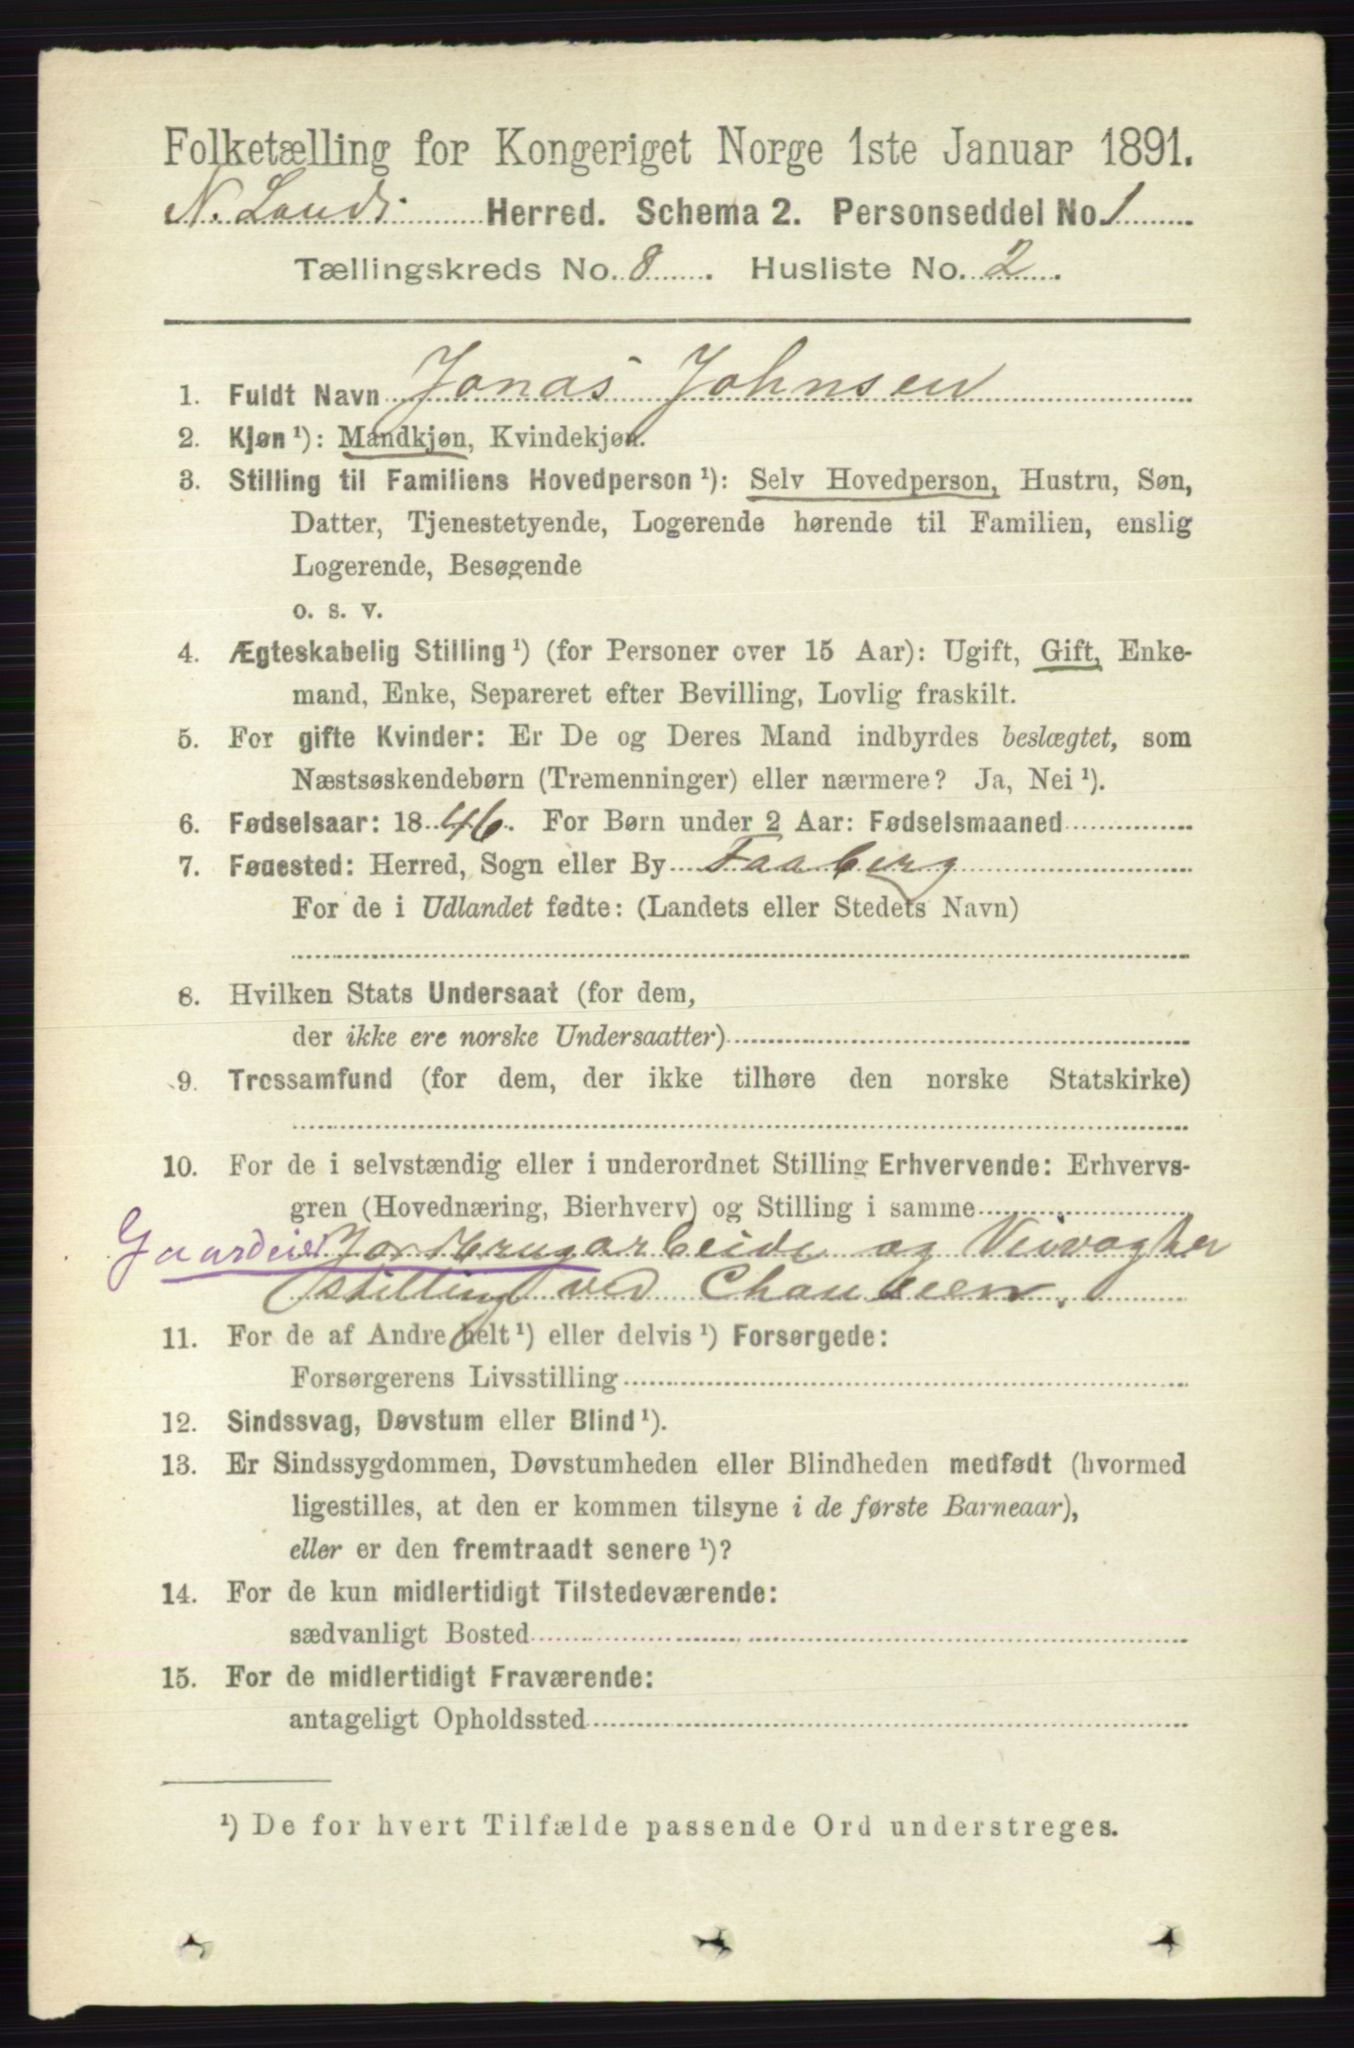 Folketælling for Kongeriget Norge 1ste Januar 1891.
N. Lands Herred. Schema 2. Personseddel No. 1
Tællingskreds No. 8. Husliste No. 2.
1. Fuldt Navn Jonas Johnsen
2. Kjøn¹): Mandkjøn, Kvindekjøn.
3. Stilling til Familiens Hovedperson¹): Selv Hovedperson, Hustru, Søn,
Datter, Tjenestetyende, Logerende hørende til Familien, enslig
Logerende, Besøgende
o. s. v.
4. Ægteskabelig Stilling¹) (for Personer over 15 Aar): Ugift, Gift, Enke-
mand, Enke, Separeret efter Bevilling, Lovlig fraskilt.
5. For gifte Kvinder: Er De og Deres Mand indbyrdes beslægtet, som
Næstsøskendebørn (Tremenninger) eller nærmere? Ja, Nei¹).
6. Fødselsaar: 1846. For Børn under 2 Aar: Fødselsmaaned
7. Fødested: Herred, Sogn eller By Faaberg
For de i Udlandet fødte: (Landets eller Stedets Navn)
8. Hvilken Stats Undersaat (for dem,
der ikke ere norske Undersaatter)
9. Trossamfund (for dem, der ikke tilhøre den norske Statskirke)
10. For de i selvstændig eller i underordnet Stilling Erhvervende: Erhvervs-
gren (Hovednæring, Bierhverv) og Stilling i samme
Gaardeier Jordbrugarbeide og Veivogter
stilling ved Chauseen.
11. For de af Andre helt¹) eller delvis¹) Forsørgede:
Forsørgerens Livsstilling
12. Sindssvag, Døvstum eller Blind¹).
13. Er Sindssygdommen, Døvstumheden eller Blindheden medfødt (hvormed
ligestilles, at den er kommen tilsyne i de første Barneaar),
eller er den fremtraadt senere¹)?
14. For de kun midlertidigt Tilstedeværende:
sædvanligt Bosted
15. For de midlertidigt Fraværende:
antageligt Opholdssted
¹) De for hvert Tilfælde passende Ord understreges.